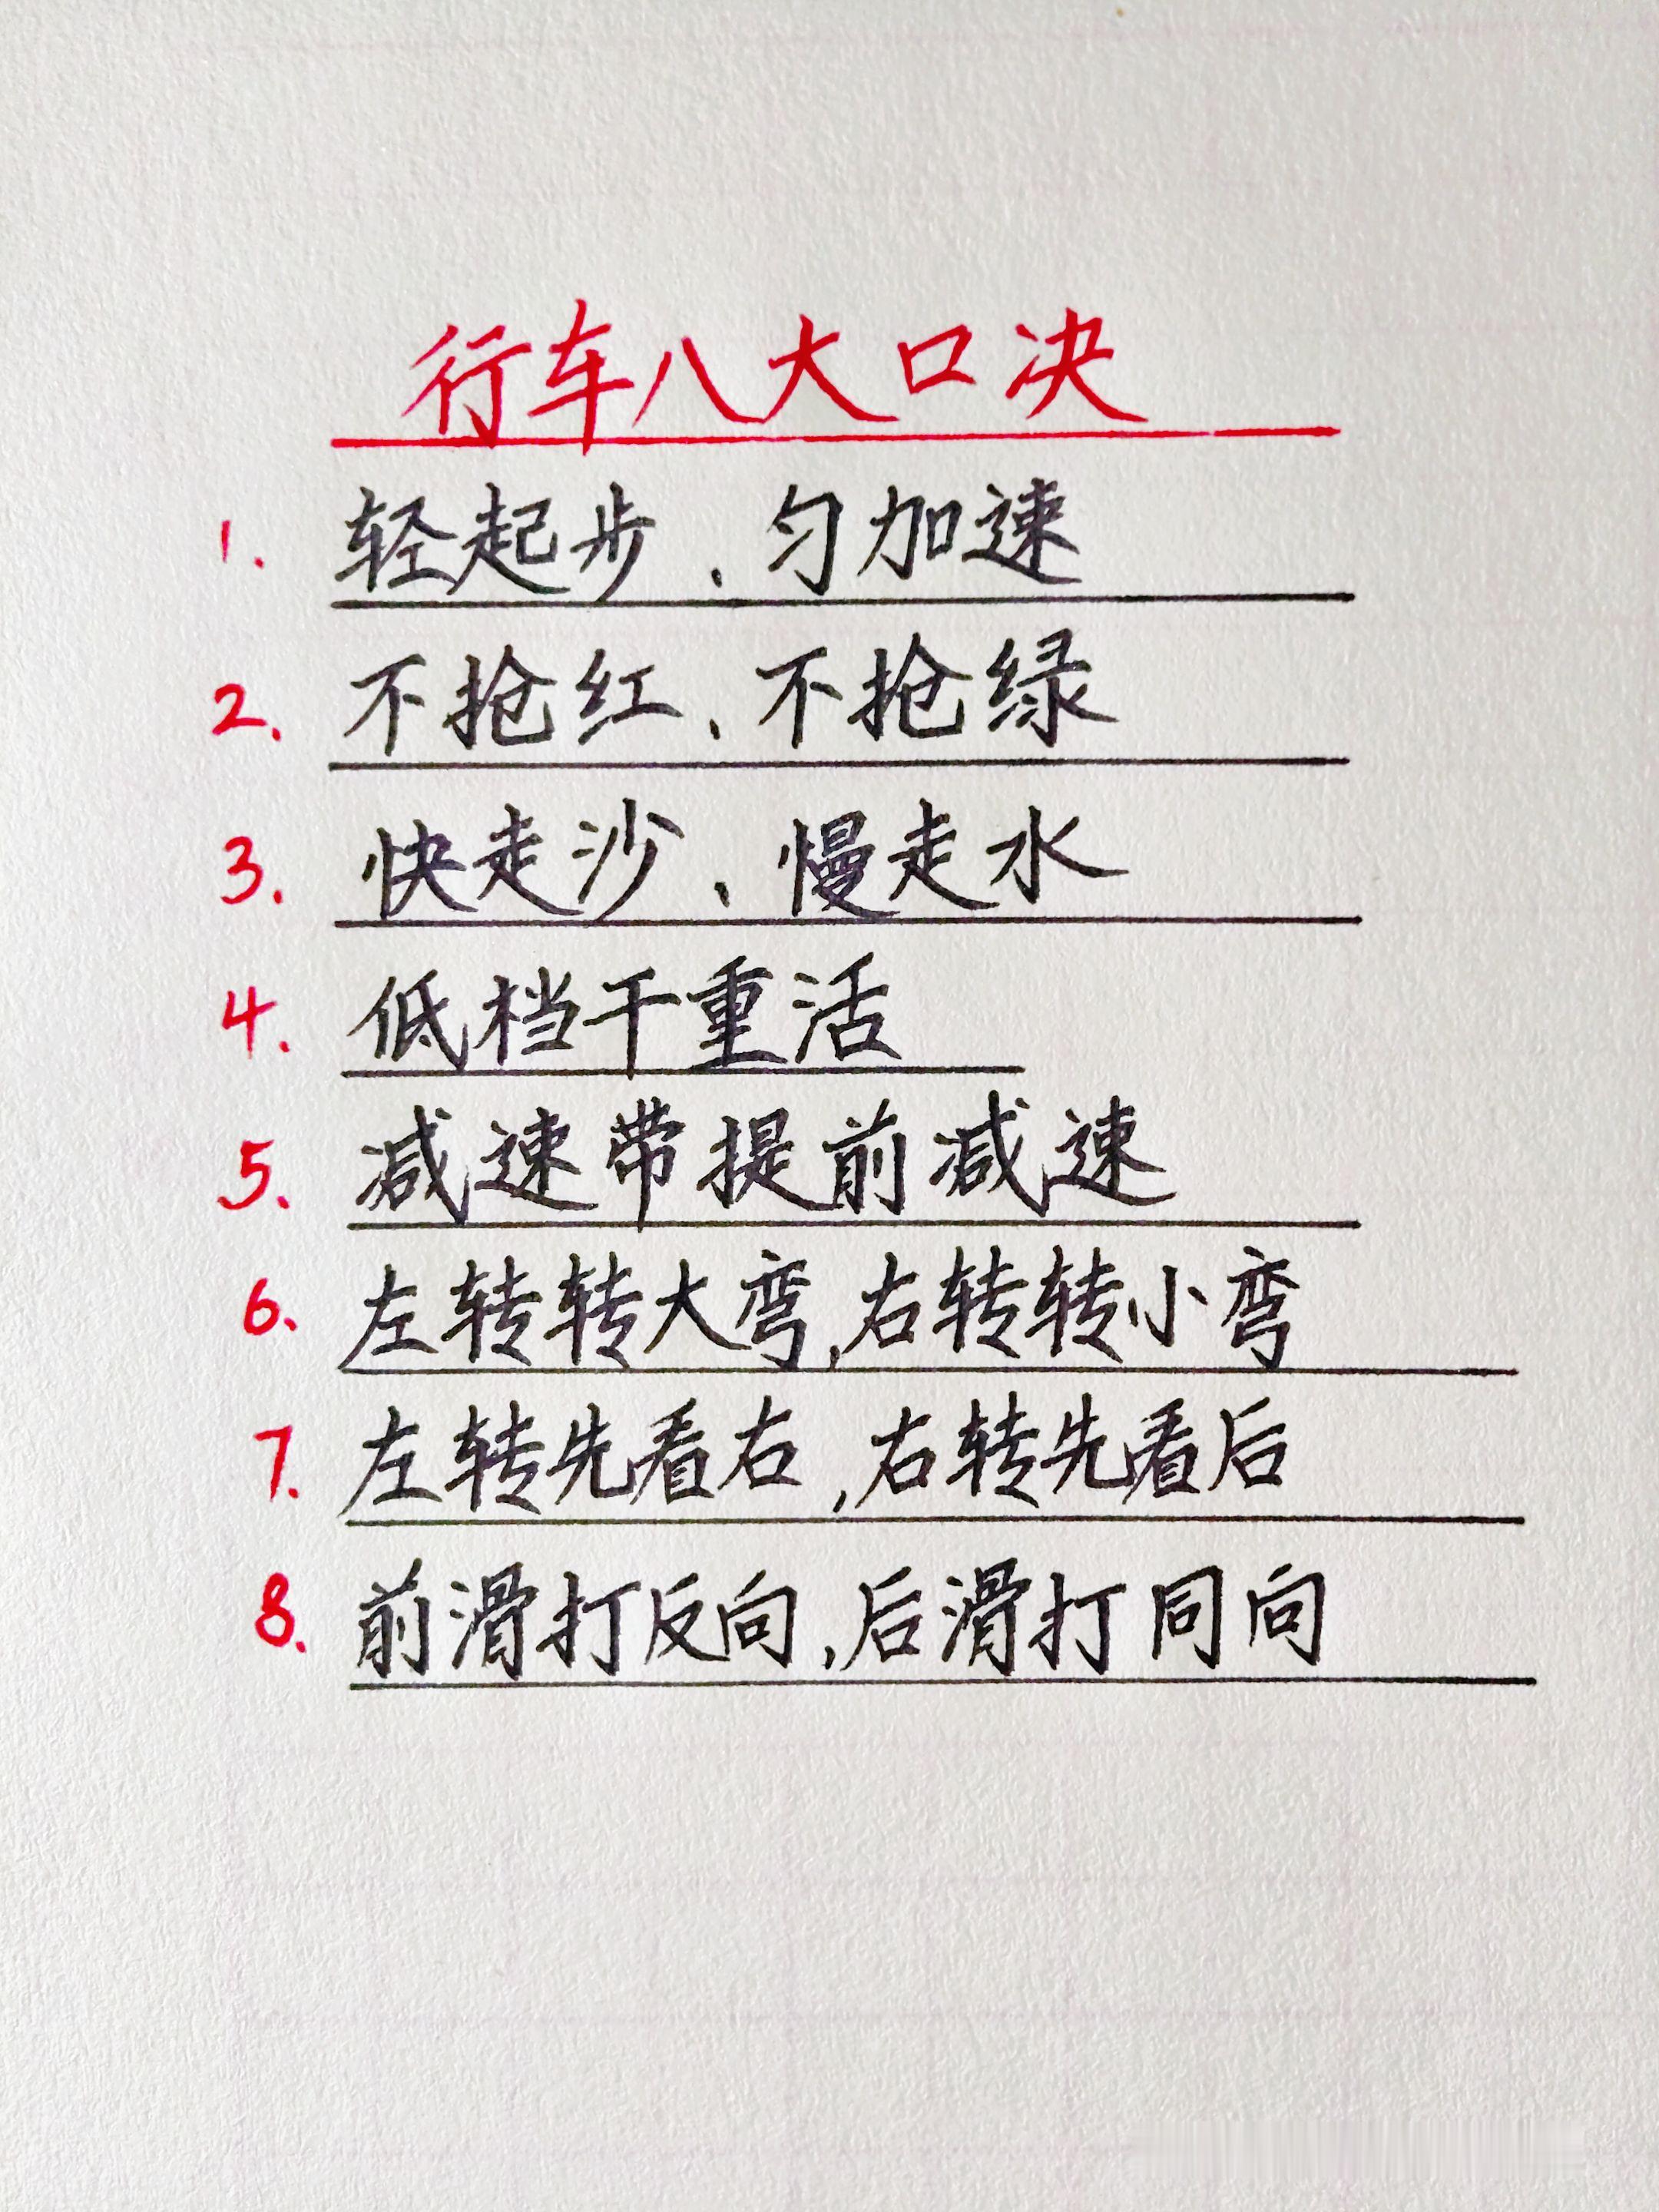 行车八大口决
1. 轻起步、匀加速
2. 不抢红、不抢绿
3. 快走沙、慢走水
4. 低档干重活
5. 减速带提前减速
6. 左转转大弯,右转转小弯
7. 左转先看右,右转先看后
8. 前滑打反向,后滑打同向